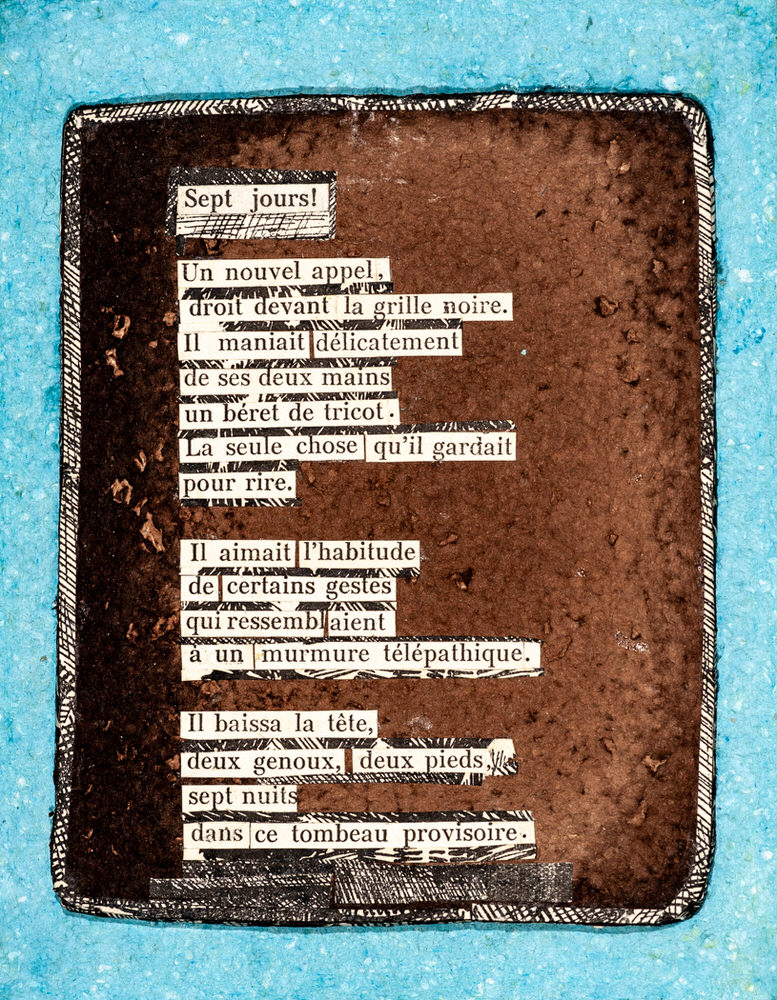 Sept jours!
Un nouvel appel,
droit devant la grille noire.
Il maniait délicatement
de ses deux mains
un béret de tricot.
La seule chose qu'il gardait
pour rire.
Il aimait l'habitude
de certains gestes
qui ressemblaient
à un murmure télépathique.
Il baissa la tête,
deux genoux, deux pieds,
sept nuits
dans ce tombeau provisoire.